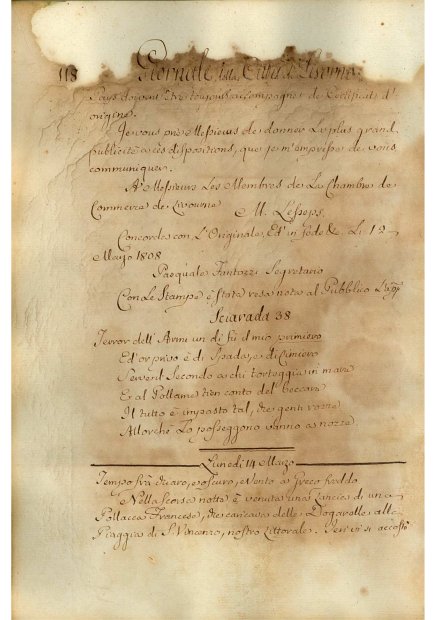 118 Giornale della Città di Livorno
Pays doivent être toujours accompagnés de Certificats d'
origine.
Je vous prie Messieurs de donner la plus grand,
publicité à ces dispositions, que je m'empresse de vous
communiquer.
A' Messieurs Les Membres de La Chambre de
Commerce de Livourne
M. Lesseps,
Concorda con L'Originale, Ed in fede &. Li 12
Marzo 1808
Pasquale Fantozzi Segretario
Con Le Stampe è stata resa nota al Pubblico
Sciarada 38
Terror dell'Armi un dì fù il mio primiero
Ed or privo è di Spada, e di Cimiero
Serve il Secondo a chi torreggia in mare
E al Pollame tien conto del beccare
Il tutto è impasto tal, che genti rozze
Allorchè Lo posseggono vanno a nozze.
Lunedì 14 Marzo
Tempo frà chiaro, e oscuro, e Vento a Greco freddo
Nella scorsa notte è venuta una Caccia di una
Pollacca Francese, che caricava delle Dogarelle alla
Piaggia di S. Vincenzo, nostro Littorale. Ieri vi si accostò